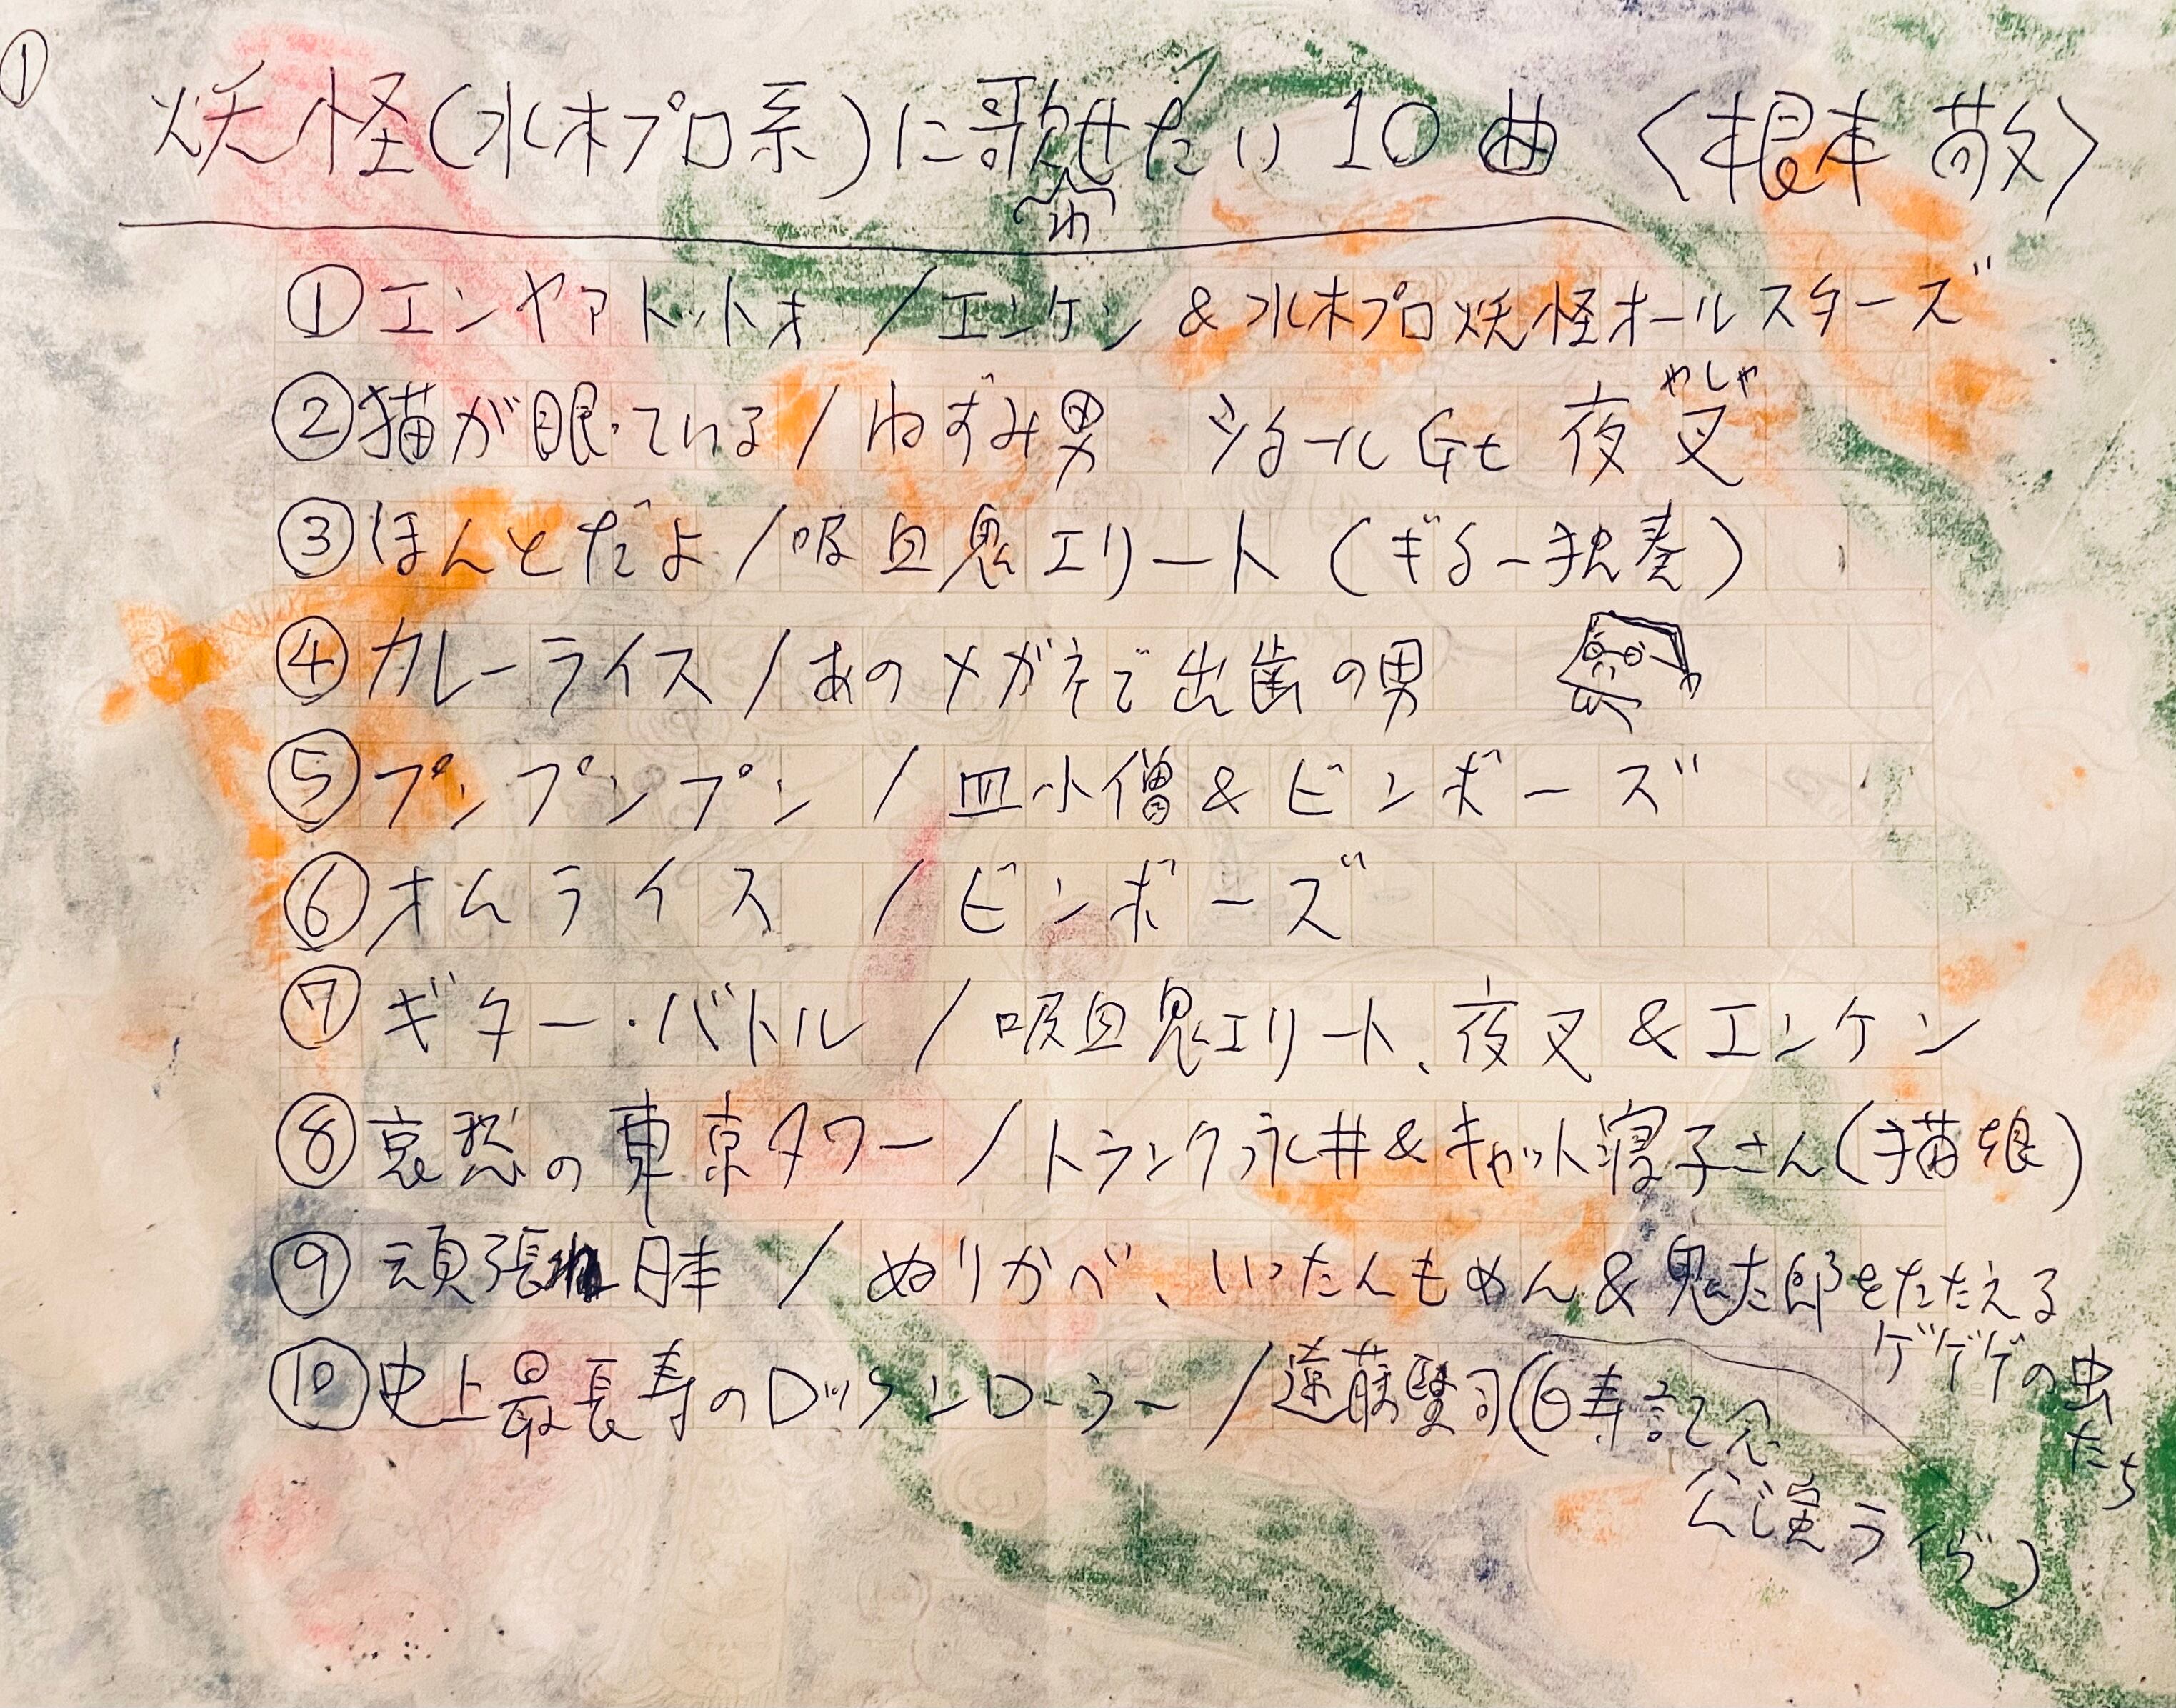 ①
妖怪(水木プロ系)に歌わせたい10曲 〈根本 敬〉
①エンヤアトットオ /エンケン &水木プロ妖怪オールスターズ
やしゃ
②猫が眠っている/ねずみ男 スチールGt 夜叉
③ほんとだよ/吸血鬼エリート(ギター独奏)
④カレーライス/あのメガネで出歯の男
⑤プンプンプン/皿小僧&ビンボーズ
⑥オムライス /ビンボーズ
⑦ギター・バトル/吸血鬼エリート、夜叉&エンケン
⑧哀愁の東京タワー/トランク永井&キャット寝子さん(猫娘)
⑨頑張れ日本 /ぬりかべ、いったんもめん&鬼太郎をたたえる
ゲゲゲの虫たち
⑩史上最長寿のロックンローラー/遠藤賢司(白寿記念
公演ライヴ)